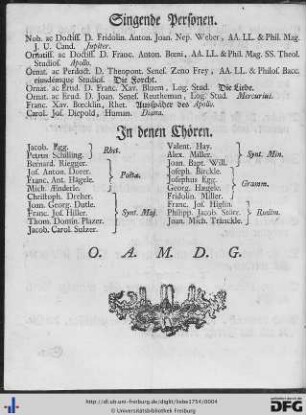 Singende Personen.
Nob. ac Doctiss. D. Fridolin. Anton. Joan. Nep. Weber, AA. LL. & Phil. Mag.
J. U. Cand. Jupiter.
Ornatiss. ac Doctiss. D. Franc. Anton. Beeni, AA. LL. & Phil. Mag. SS. Theol.
Studios. Apollo.
Ornat. ac Perdoct. D. Theopont. Senes. Zeno Frey, AA. LL. & Philos. Bacc.
ejusdémque Studios. Die Forcht.
Ornat. ac Erud. D. Franc. Xav. Bluem, Log. Stud. Die Liebe.
Ornat. ac Erud. D. Joan. Senes. Reutheman, Log. Stud. Mercurius.
Franc. Xav. Bœcklin, Rhet. Ausspäher des Apollo.
Carol. Jos. Diepold, Human. Diana.
In denen Chören.
Jacob. Egg.
Petrus Schilling.
Rhet.
Bernard. Riegger.
Jos. Anton. Dorer.
Franc. Ant. Hägele.
Mich. Ænderle.
Poëtæ.
Christoph. Dreher.
Joan. Georg. Dutle.
Franc. Jos. Hiller.
Thom. Domin. Plazer.
Jacob. Carol. Sulzer.
Synt. Maj.
Valent. Hay.
Alex. Miller.
Synt. Min.
Joan. Bapt. Will.
Joseph. Birckle.
Josephus Egg.
Georg. Hægele.
Fridolin. Miller.
Gramm.
Franc. Jos. Higlin.
Philipp. Jacob.
Joan. Mich. Tränckle.
Rudim.
O. A. M. D. G.
http://dl.ub.uni-freiburg.de/diglit/lobe1754/0004
© Universitätsbibliothek Freiburg
gefördert durch die
DFG